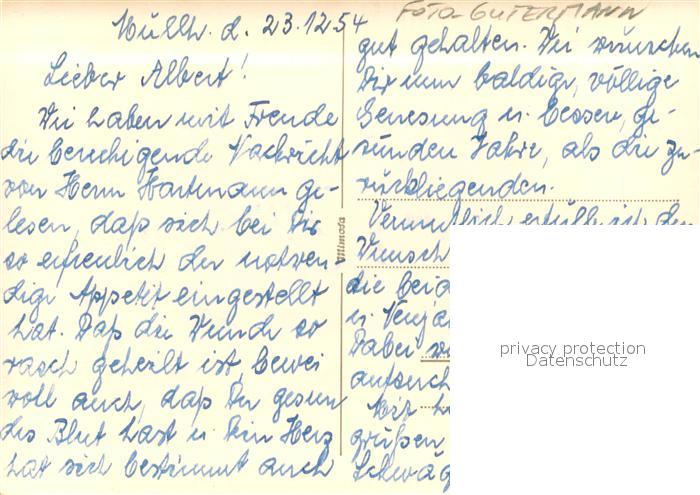 Müllh. d. 23.12.54
Lieber Albert!
Wir haben mit Freude
die beruhigende Nachricht
von Herrn Hartmann ge-
lesen, daß sich bei Dir
so erfreulich der notwen
dige Appetit eingestellt
hat. Daß die Wunde so
rasch geheilt ist, bewei
voll auch, daß Du gesun
des Blut hast u. Dein Herz
hat sich bestimmt auch
Mimosa
FOTO-GUTERMANN
gut gehalten. Wir wünschen
Dir nun baldige, völlige
Genesung u. bessere, ge-
sunden Jahre, als die zu-
rückliegenden.
Vermutlich erfülle ich den
Wunsch
die bei
u.
Dabei
aufsuch
Mit
grüßen
Schwäg
privacy protection
Datenschutz